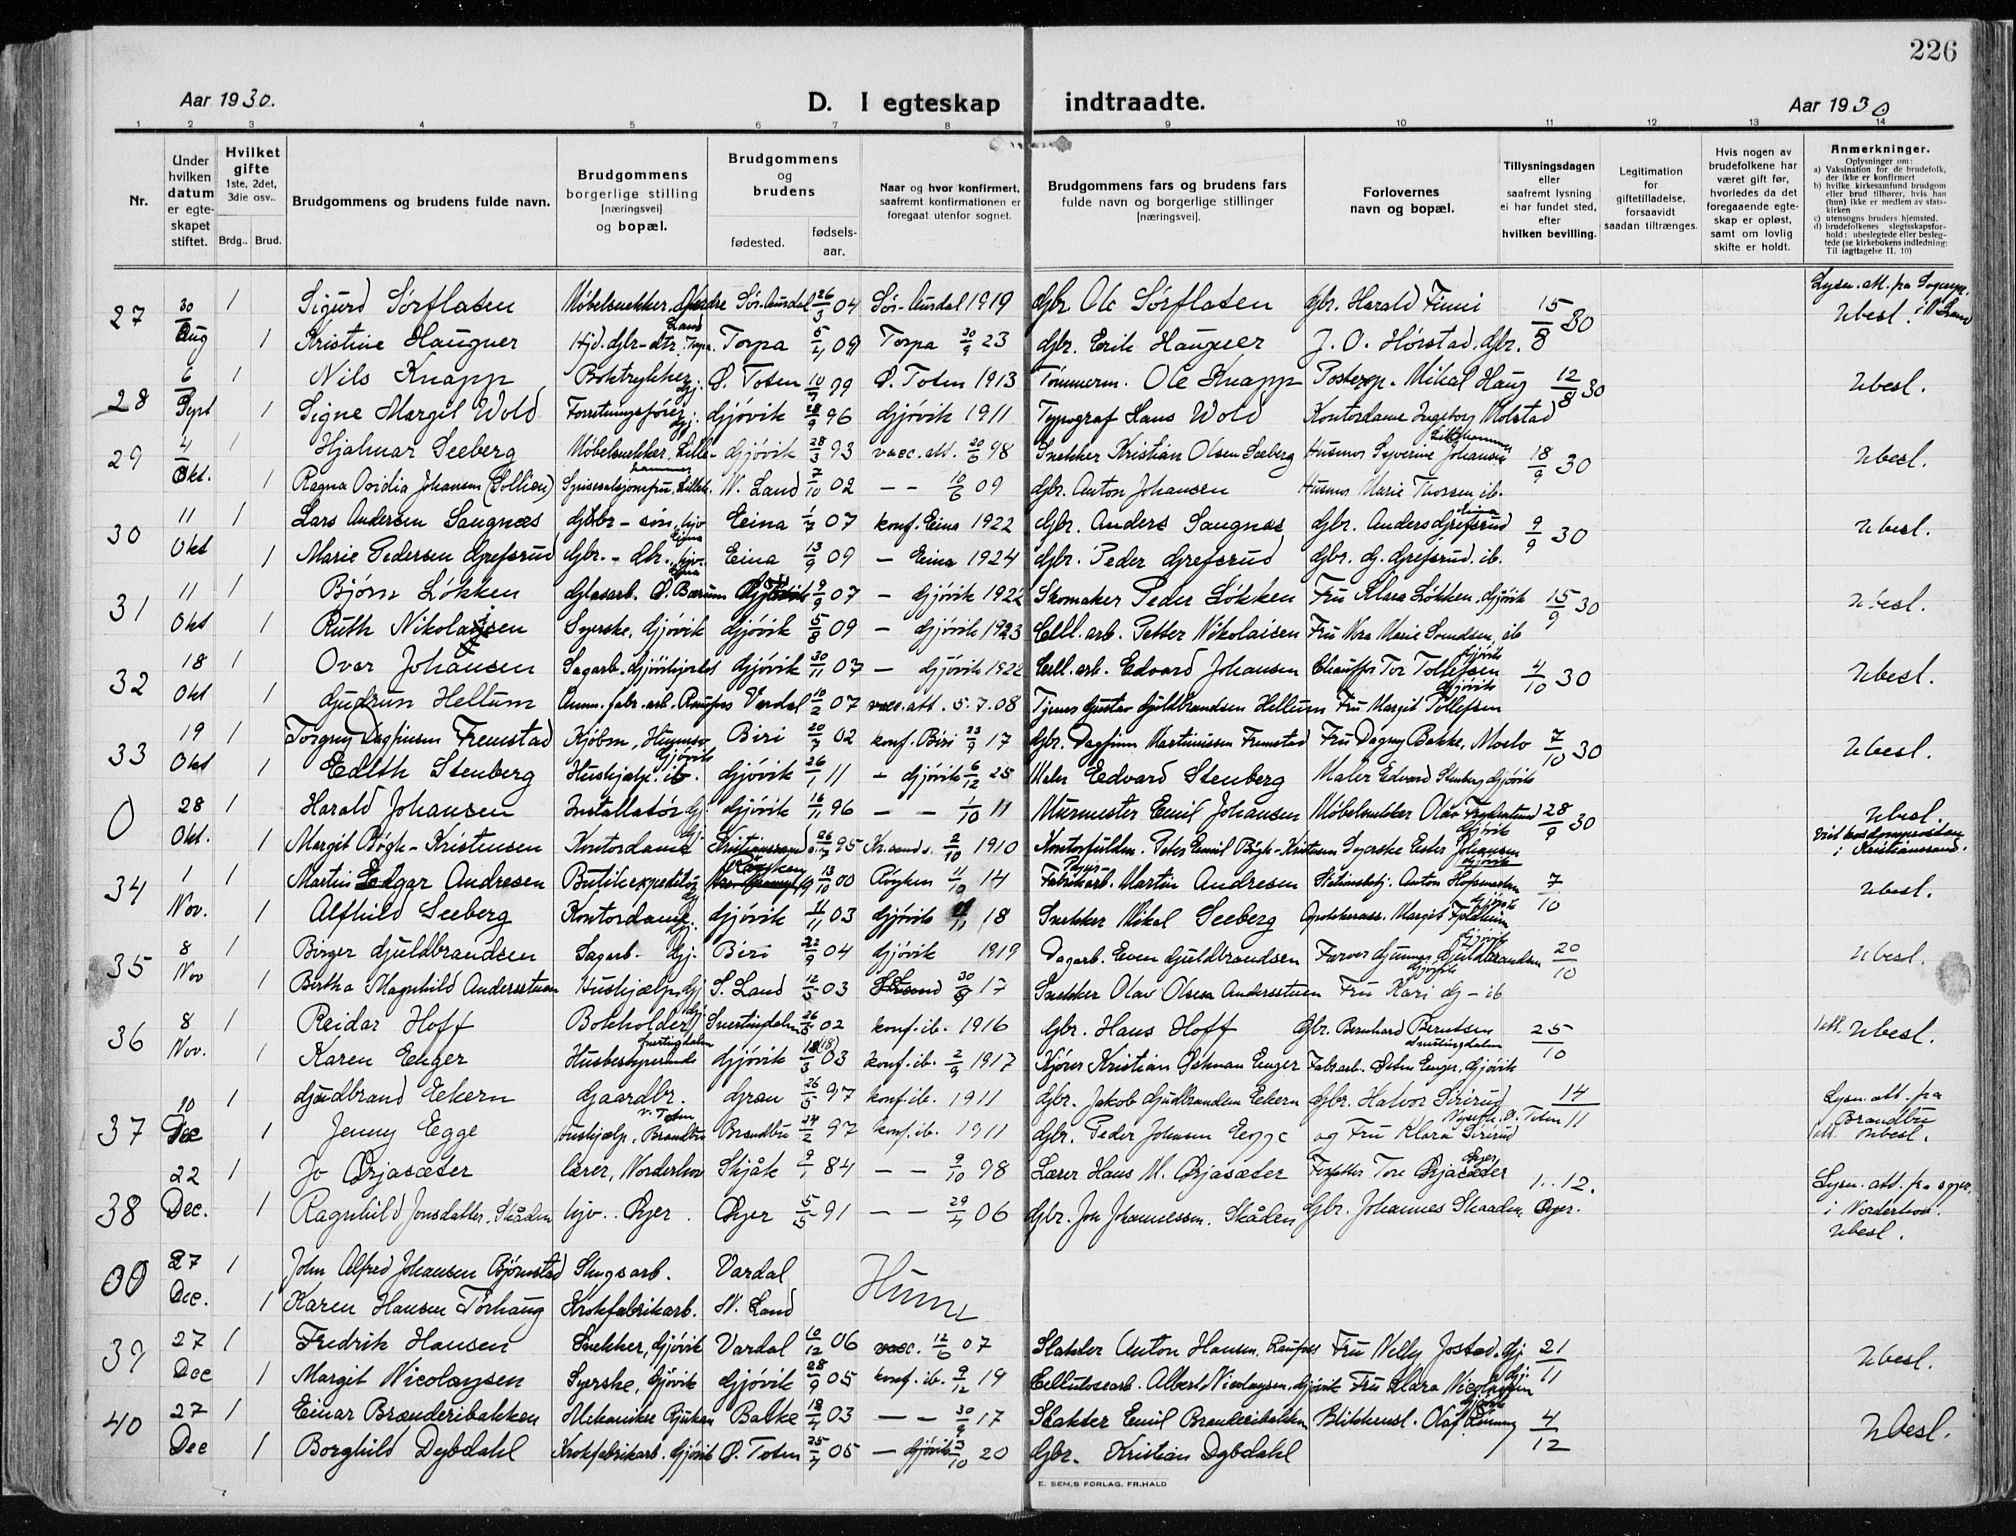 226
Aar 1930. D. I egteskap indtraadte. Aar 1930
1 2 3 4 5 6 7 8 9 10 11 12 13 14
Nr.
Under hvilken datum er egteskapet stiftet.
Hvilket gifte 1ste, 2det, 3die osv.. Brdg.. Brud.
Brudgommens og brudens fulde navn.
Brudgommens borgerlige stilling [næringsvei] og bopæl.
Brudgommens og brudens fødested. fødsels-aar.
Naar og hvor konfirmert, saafremt konfirmationen er foregaat utenfor sognet.
Brudgommens fars og brudens fars fulde navn og borgerlige stillinger [næringsvei].
Forlovernes navn og bopæl.
Tillysningsdagen eller saafremt lysning ei har fundet sted, efter hvilken bevilling.
Legitimation for giftetilladelse, forsaavidt saadan tiltrænges.
Hvis nogen av brudefolkene har været gift før, hvorledes da det foregaaende egteskap er opløst, samt om lovlig skifte er holdt.
Anmerkninger.
Oplysninger om:
a) Vaksination for de brudefolk, der ikke er konfirmert
b) hvilke kirkesamfund brudgom eller brud tilhører, hvis han (hun) ikke er medlem av statskirken
c) utensogns bruders hjemsted.
d) brudefolkenes slegtsskapsforhold: ubeslegtede eller beslegtede (se kirkebokens indledning: Til iagttagelse II. 10)
27 30/8 Aug 1 Sigurd Sørflaten Møbelsnekker, Søndre Land Sør-Aurdal 26/3 04 Sør-Aurdal 1919 Gbr Ole Sørflaten Gbr. Harald Finni 15/8 30 Lysn. att. fra Sognepr. i N. Land Ubesl.
1 Kristine Haugner Hjd. Gbr-dtr. Torpa. Torpa 5/4 09 Torpa 30/9 23 Gbr. Erik Haugner J. O. Hørstad, Gbr.
28 6 Sept 1 Nils Knapp Boktrykker, Gj. Ø. Toten 10/7 99 Ø. Toten 1913 Tømmerm. Ole Knapp Posteksp. Mikal Haug 12/8 30 Ubesl.
1 Signe Margit Wold Forretningsfører, Gj. Gjøvik 28/9 96 Gjøvik 1911 Typograf Hans Wold Kontordame Ingeborg Molstad
29 4 Okt. 1 Hjalmar Seeberg Møbelsnekker, Lillehammer Gjøvik 28/3 93 vacc. att. 20/6 98 Snekker Kristian Olsen Seeberg Husmor Severine Johansen Lillehammer 18/9 30 Ubesl.
1 Ragna Ovidia Johansen (Sollien) Lilleh. N. Land 7/10 02 - - 10/6 09 Gbr. Anton Johansen Husmor Marie Thorsen ib.
30 11 Okt 1 Lars Andersen Saugnæs Gbr-søn, hjv Eina Eina 1/7 07 konf. Eina 1922 Gbr. Anders Saugnæs Gbr. Anders Grefsrud Eina 9/9 30 Ubesl.
1 Marie Pedersen Grefsrud Gbr.-dtr., hjv. Eina Eina 13/9 09 - Eina 1924 Gbr. Peder Grefsrud Gbr. G. Grefsrud ib.
31 11 Okt 1 Bjørn Løkken Glasarb. Ø. Bærum 9/9 07 - Gjøvik 1922 Skomaker Peder Løkken Fru Klara Løkken, Gjøvik 15/9 30 Ubesl.
1 Ruth Nikolaisen Syerske, Gjøvik Gjøvik 5/8 09 - Gjøvik 1923 Cell. arb. Petter Nikolaisen Fru Nora Marie Svendsen, ib
32 18 Okt 1 Ovar Johansen Sagarb. Gjøvik 30/11 07 - Gjøvik 1922 Cell. arb. Edvard Johansen Chauffør Tor Tollefsen Gjøvik 4/10 30 Ubesl.
1 Gudrun Hellum Amm. fabr. arb. Raufoss Vardal 10/2 07 vacc. att. 5.7.08 Tjener Gustav Guldbrandsen Hellum Fru Margit Tollefsen Gjøvik
33 19 Okt 1 Torgny Dagfinsen Fremstad Kjøbm, Gjøvik Biri 20/7 02 konf. Biri 23/9 17 Gbr. Dagfinn Martinussen Fremstad Fru Dagny Bakke, Moelv 7/10 30 Ubesl.
1 Edith Stenberg Hushjælp. ib. Gjøvik 26/1 11 - Gjøvik 6/12 25 Maler Edvard Stenberg Maler Edvard Stenberg Gjøvik
0 28 Okt. 1 Harald Johansen Installatør Gj. Gjøvik 16/11 96 - - 1/10 11 Murmester Emil Johansen Møbelsnekker Olav Gjøvik 28/9 30 Ubesl.
1 Margit Bøgh-Kristensen Kontordame Gj. Kristianssand 26/7 95 Kr.sand s. 2/10 1910 Peter Emil Bøgh-Kristensen Syerske Ester Johansen Gjøvik i Kristianssand.
34 1 Nov. 1 Martin Edgar Andresen Butikexpeditør Gj Røyken 13/10 00 Røyken 11/10 14 Fabrikarb. Martin Andresen Anton Hofmarken 7/10 Ubesl.
1 Alfhild Seeberg Kontordame, Gj. Gjøvik 11/11 03 Gjøvik 18 Snekker Mikal Seeberg Margit Gjøvik
35 8 Nov 1 Birger Guldbrandsen Sagarb. Gj. Biri 22/9 04 Gjøvik 1919 Dagarb. Even Guldbrandsen Farver Gunnar Guldbrandsen Gjøvik 20/10 Ubesl.
1 Bertha Magnhild Andersstuen Hushjælp, Gj S. Land 12/5 03 30/9 17 Snekker Olav Olsen Andersstuen Fru Kari G - ib
36 8 Nov. 1 Reidar Hoff Bokholder, Gj. Snertingdalen 26/5 02 konf. ib. 1916 Gbr. Hans Hoff Gbr. Bernhard Berntsen Snertingdalen 25/10 Ubesl.
1 Karen Enger Husbestyrerinde Snertingdalen Gjøvik 18/3 03 konf. ib. 2/9 1917 Kjører Kristian Østman Enger Fabr.arb. Østen Enger, Gjøvik
37 10 Dec 1 Gudbrand Eekern Gaardbr. V. Toten Gran 26/5 97 konf. ib. 1911 Gbr. Jakob Gudbrandsen Eekern Gbr. Halvor Sirirud Ø. Toten 14/11 Lysn. att. fra Brandbu
1 Jenny Egge Hushjælp, Brandbu Brandbu 24/2 97 konf. ib. 1911 Gbr. Peder Johansen Egge og Fru Klara Sirirud Ubesl.
38 22 Dec. 1 Jo Ørjasæter Lærer, Norderhov Skjåk 9/1 84 - - 9/10 98 Lærer Hans M. Ørjasæter Forfatter Tore Ørjasæter 1..12. Lysn. att. fra sgpr. i Norderhov.
1 Ragnhild Jonsdatter Skåden hjv.. Øyer. Øyer 5/5 91 - - 29/7 06 Gbr. Jon Johannessen. Skåden Gbr. Johannes Skaaden, Øyer. Ubesl.
00 27 Dec. 1 John Alfred Johansen Bjørnstad Skogsarb. Vardal
1 Karen Hansen Torhaug Krokfabrikarb. N. Land
39 27 Dec 1 Fredrik Hansen Snekker, Gjøvik Vardal 10/12 06 vacc. 12/6 07 Slakter Anton Hansen, Raufoss Fru Nelly Jostad, Gj. 21/11 Ubesl.
1 Margit Nicolaysen Syerske, Gjøvik Gjøvik 28/9 05 konf. ib. 9/12 19 Cellulosearb. Albert Nicolaysen, Gjøvik Fru Klara Nicolaysen Gj.
40 27 Dec 1 Einar Brænderibakken Mekaniker Rjukan Balke 18/4 03 - - 30/9 17 Slakter Emil Brænderibakken Blikkensl. Olaf Gjøvik 4/12 Ubesl.
1 Borghild Dybdahl Krokfabrikarb. Gjøvik Ø. Toten 25/4 05 - Gjøvik 3/10 20 Gbr. Kristian Dybdahl
E. SEM,S FORLAG. FR.HALD